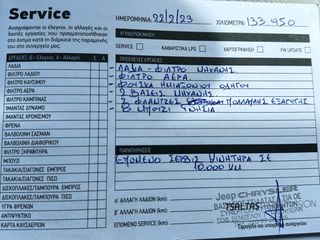 Service
Αναγράφονται οι έλεγχοι, οι αλλαγές και οι
λοιπές εργασίες που πραγματοποιήθηκαν
στο όχημα κατά τη διάρκεια της παραμονής
του στο συνεργείο μας.
ΗΜΕΡΟΜΗΝΙΑ: 22/2/23
ΧΙΛΙΟΜΕΤΡΑ: 133.950
ΥΓΡΑΕΡΙΟΚΙΝΗΣΗ
SERVICE
ΚΑΘΑΡΙΣΤΙΚΑ LPG
ΧΑΡΤΟΓΡΑΦΗΣΗ
FW UPDATE
ΕΡΓΑΣΙΕΣ (Ε- Έλεγχος, Α- Αλλαγή) Ε Α
ΛΑΔΙΑ
ΦΙΛΤΡΟ ΛΑΔΙΟΥ
ΦΙΛΤΡΟ ΚΑΥΣΙΜΟΥ
ΦΙΛΤΡΟ ΑΕΡΑ
ΦΙΛΤΡΟ ΚΑΜΠΙΝΑΣ
ΙΜΑΝΤΑΣ ΔΥΝΑΜΟ
ΙΜΑΝΤΑΣ ΧΡΟΝΙΣΜΟΥ
ΦΡΕΝΑ
ΒΑΛΒΟΛΙΝΗ ΣΑΣΜΑΝ
ΒΑΛΒΟΛΙΝΗ ΔΙΑΦΟΡΙΚΟΥ
ΦΙΛΤΡΟ ΞΗΡΑΝΤΗΡΑ
ΜΠΟΥΖΙ
ΤΑΚΑΚΙΑ/ΣΙΑΓΩΝΕΣ ΕΜΠΡΟΣ
ΤΑΚΑΚΙΑ/ΣΙΑΓΩΝΕΣ ΠΙΣΩ
ΔΙΣΚΟΠΛΑΚΕΣ/ΤΑΜΠΟΥΡΑ ΕΜΠΡΟΣ
ΔΙΣΚΟΠΛΑΚΕΣ/ΤΑΜΠΟΥΡΑ ΠΙΣΩ
ΥΓΡΑ ΦΡΕΝΩΝ
ΑΝΤΙΨΥΚΤΙΚΟ
ΚΑΡΤΑ ΚΑΥΣΑΕΡΙΩΝ
ΠΡΟΣΘΕΤΕΣ ΕΡΓΑΣΙΕΣ
ΛΑΔΙΑ - ΦΙΛΤΡΟ ΜΗΧΑΝΗΣ
ΦΙΛΤΡΟ ΑΕΡΑ
ΦΟΥΣΚΑ ΗΜΙΑΞΟΝΙΟΥ ΟΔΗΓΟΥ
2 ΒΑΣΕΙΣ ΜΗΧΑΝΗΣ
2 ΦΛΑΝΤΖΕΣ ΠΟΛΛΑΠΛΗΣ ΕΞΑΓΩΓΗΣ
8 ΜΠΟΥΖΙ ΓΝΗΣΙΑ
ΠΑΡΑΤΗΡΗΣΕΙΣ
ΕΠΟΜΕΝΟ ΣΕΡΒΙΣ ΚΙΝΗΤΗΡΑ ΣΕ
10.000 ΚΜ
Jeep CHRYSLER
TSALTAS
Α' ΑΛΛΑΓΗ ΛΑΔΙΟΥ (km):
Β' ΑΛΛΑΓΗ ΛΑΔΙΟΥ (km):
ΕΠΟΜΕΝΟ SERVICE (km):
Σφραγίδα και υπογραφή συνεργείου